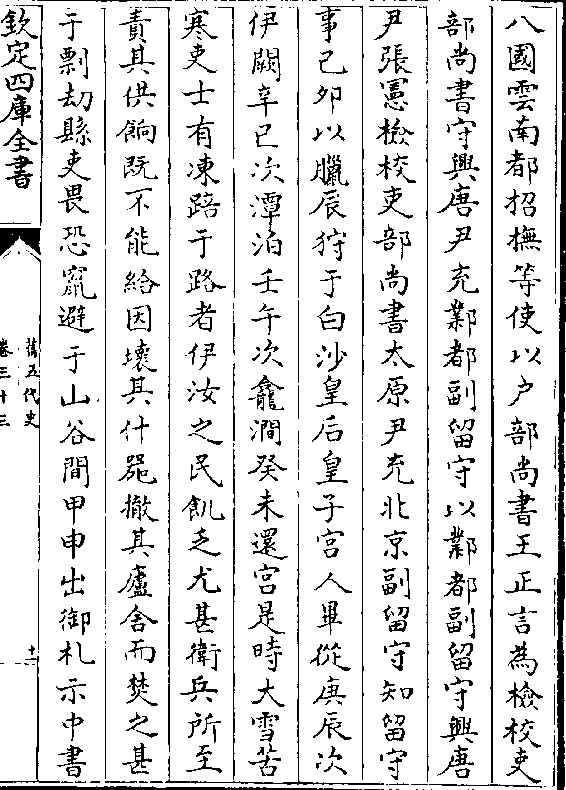 八國雲南都招撫等使以户部尚書王正言為檢校吏
部尚書守興唐尹充鄴都副留守以鄴都副留守興唐
尹張憲檢校吏部尚書太原尹充北京副留守知留守
事己卯以臘辰狩于白沙皇后皇子宫人畢從庚辰次
伊闕辛巳次潭泊壬午次龕澗癸未還宫是時大雪苦
寒吏士有凍踣于路者伊汝之民飢乏尤甚衛兵所至
責其供餉既不能給因壊其什器撤其廬舎而焚之甚
于剽刼縣吏畏恐竄避于山谷間甲申出御札示中書
欽定四庫全書
舊五代史
卷三十三
十